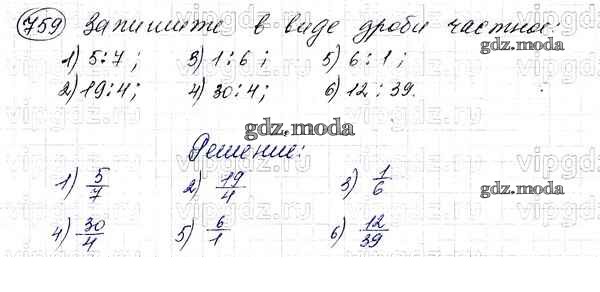 759 Запишите в виде дроби частное:
1) 5:7; 3) 1:6; 5) 6:1;
2) 19:4; 4) 30:4; 6) 12:39.
gdz.moda
gdz.moda
Решение:
1) 5/7 2) 19/4 3) 1/6
4) 30/4 5) 6/1 6) 12/39